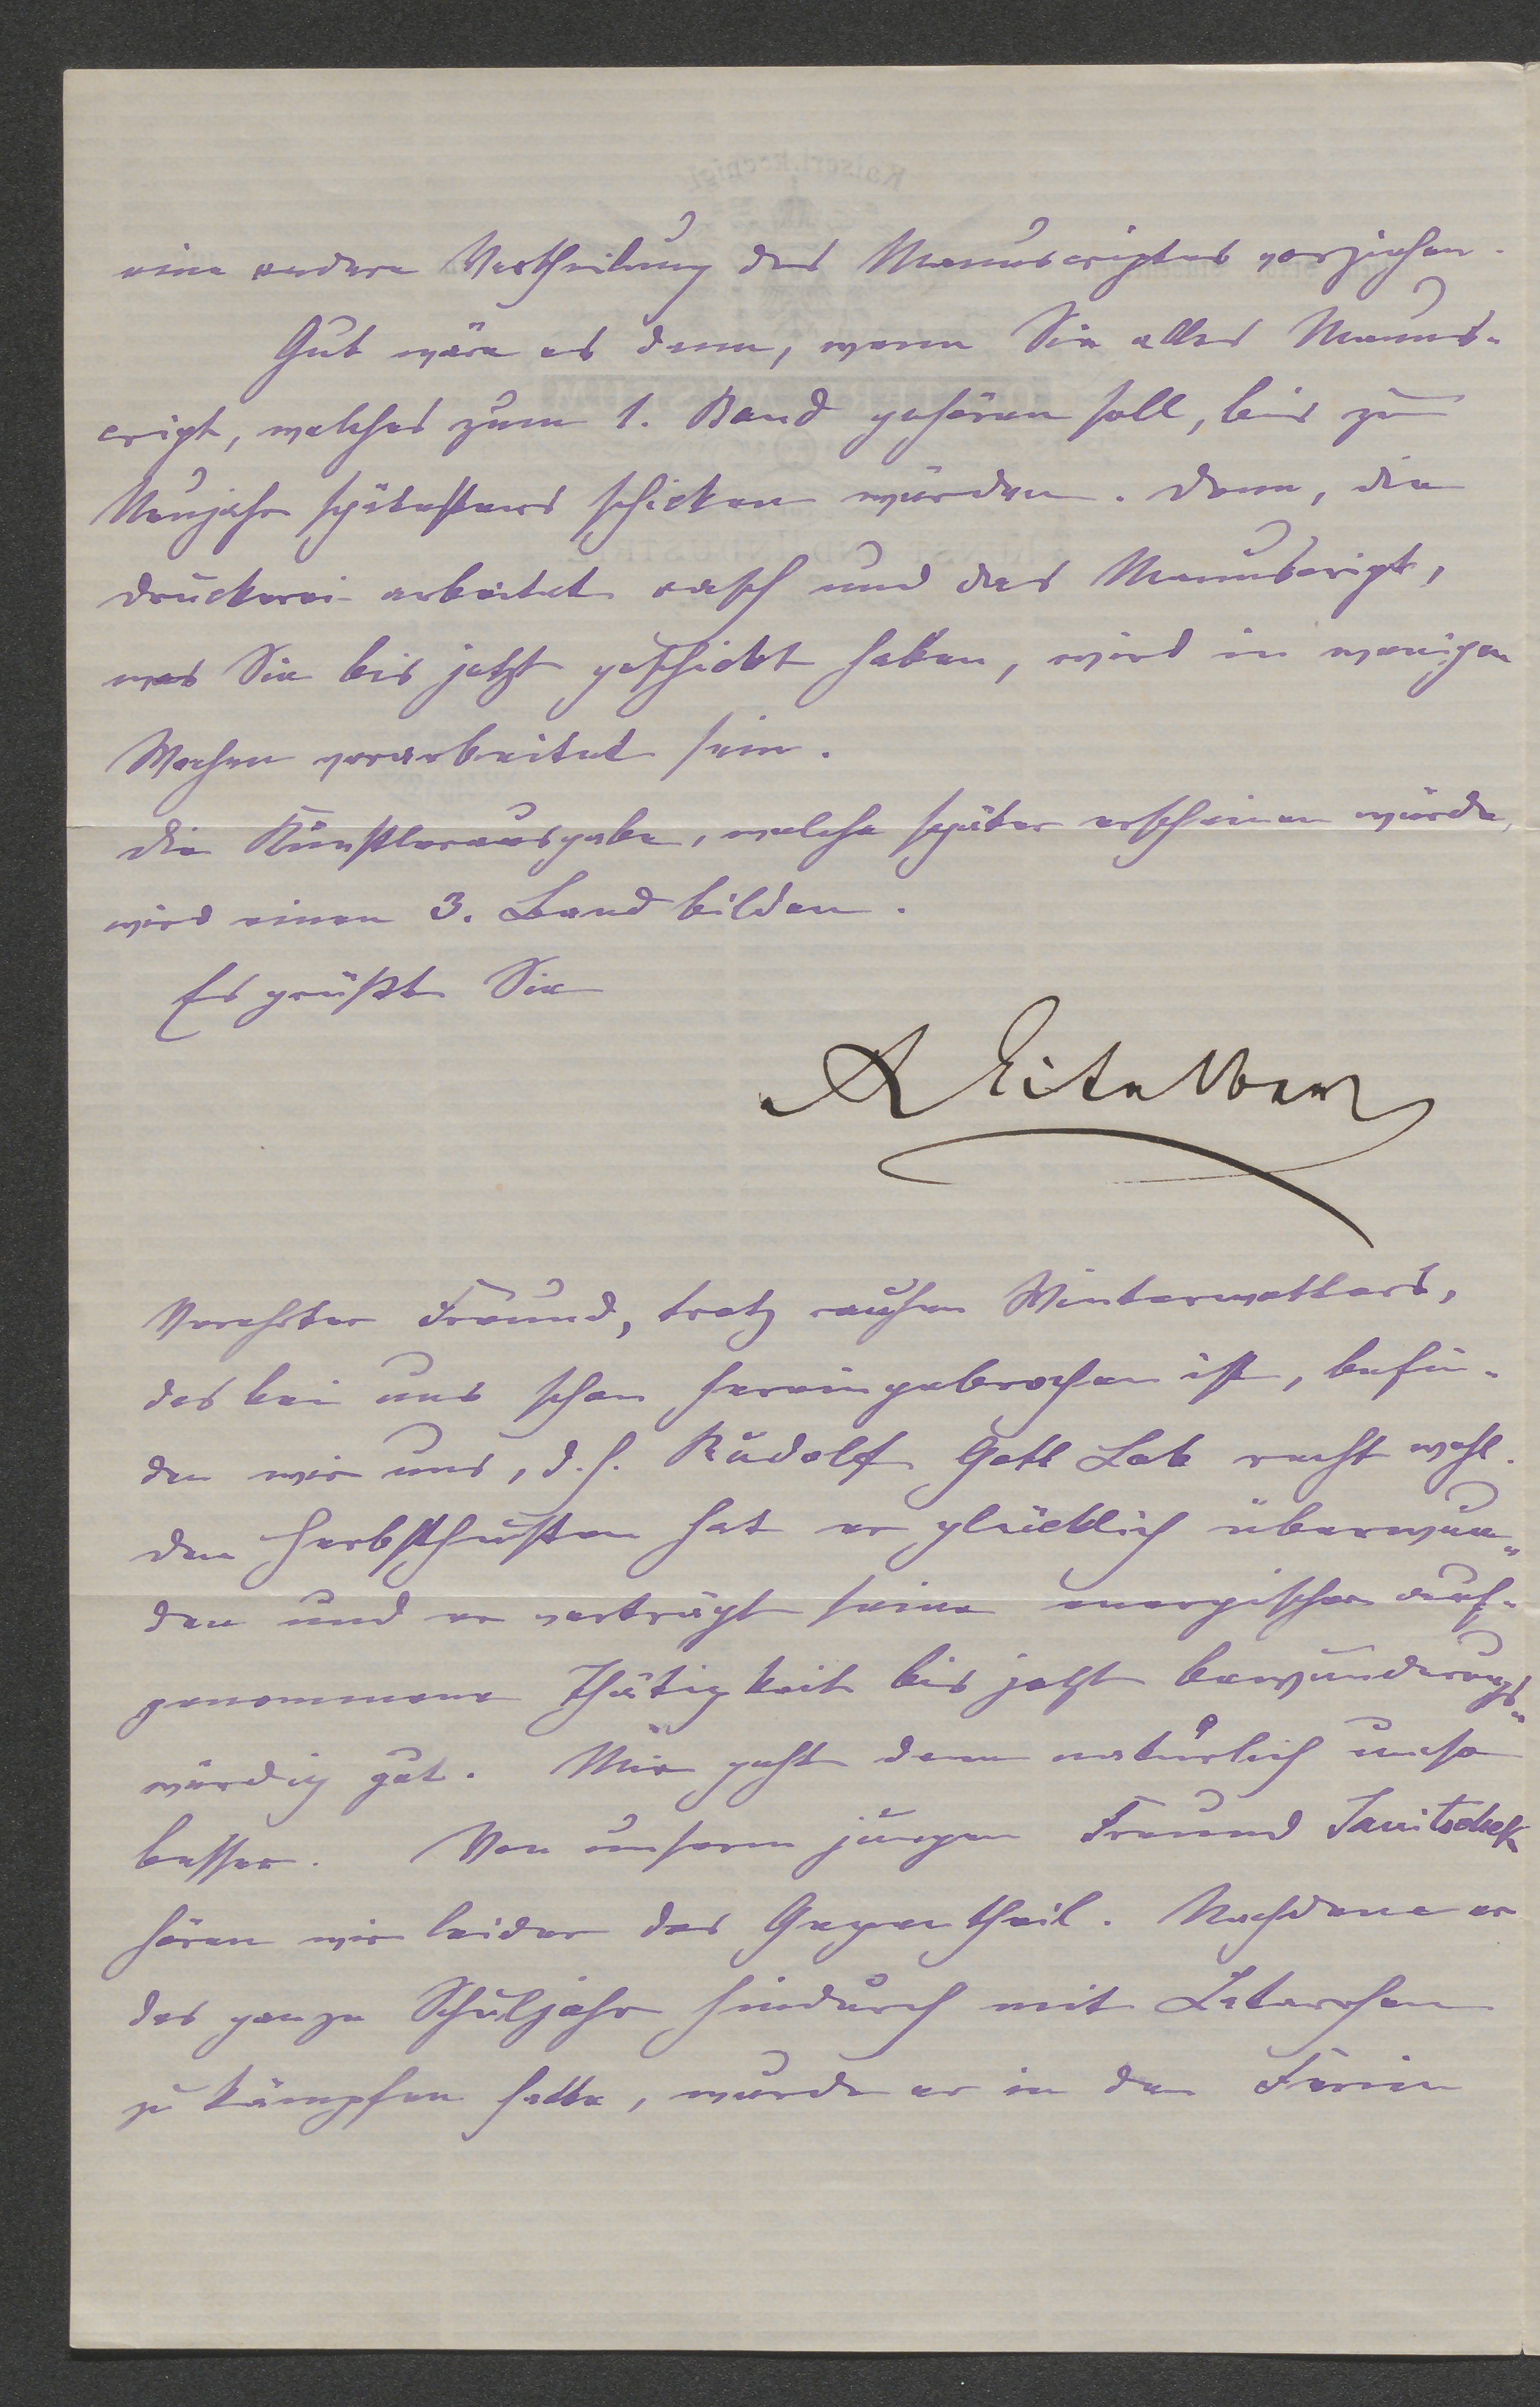 eine andere Vertheilung des Manuscriptes vorziehen.
Gut wäre es denn, wenn Sie alles Manus-
cript, welches zum 1. Band gehören soll, bis zu
Neujahr spätestens schicken würden. Denn, die
Druckerei arbeitet rasch und das Manuscript,
was Sie bis jetzt geschickt haben, wird in wenigen
Wochen verarbeitet sein.
Die Künstlerausgabe, welche später erscheinen würde,
wird einen 3. Band bilden.
Es grüßt Sie
R Eitelberger
Verehrter Freund, trotz rauhen Winterwetters,
das bei uns schon hereingebrochen ist, befin-
den wir uns, d. h. Rudolf Gott Lob recht wohl.
Den Herbsthusten hat er glücklich überwun-
den und er verträgt seine energischer auf-
genommene Thätigkeit bis jetzt bewunderungs-
würdig gut. Mir geht denn natürlich umso
besser. Von unserm jungen Freund Janitschek
hören wir leider das Gegentheil. Nachdem er
das ganze Schuljahr hindurch mit Katarrhen
zu kämpfen hatte, wurde er in den Ferien